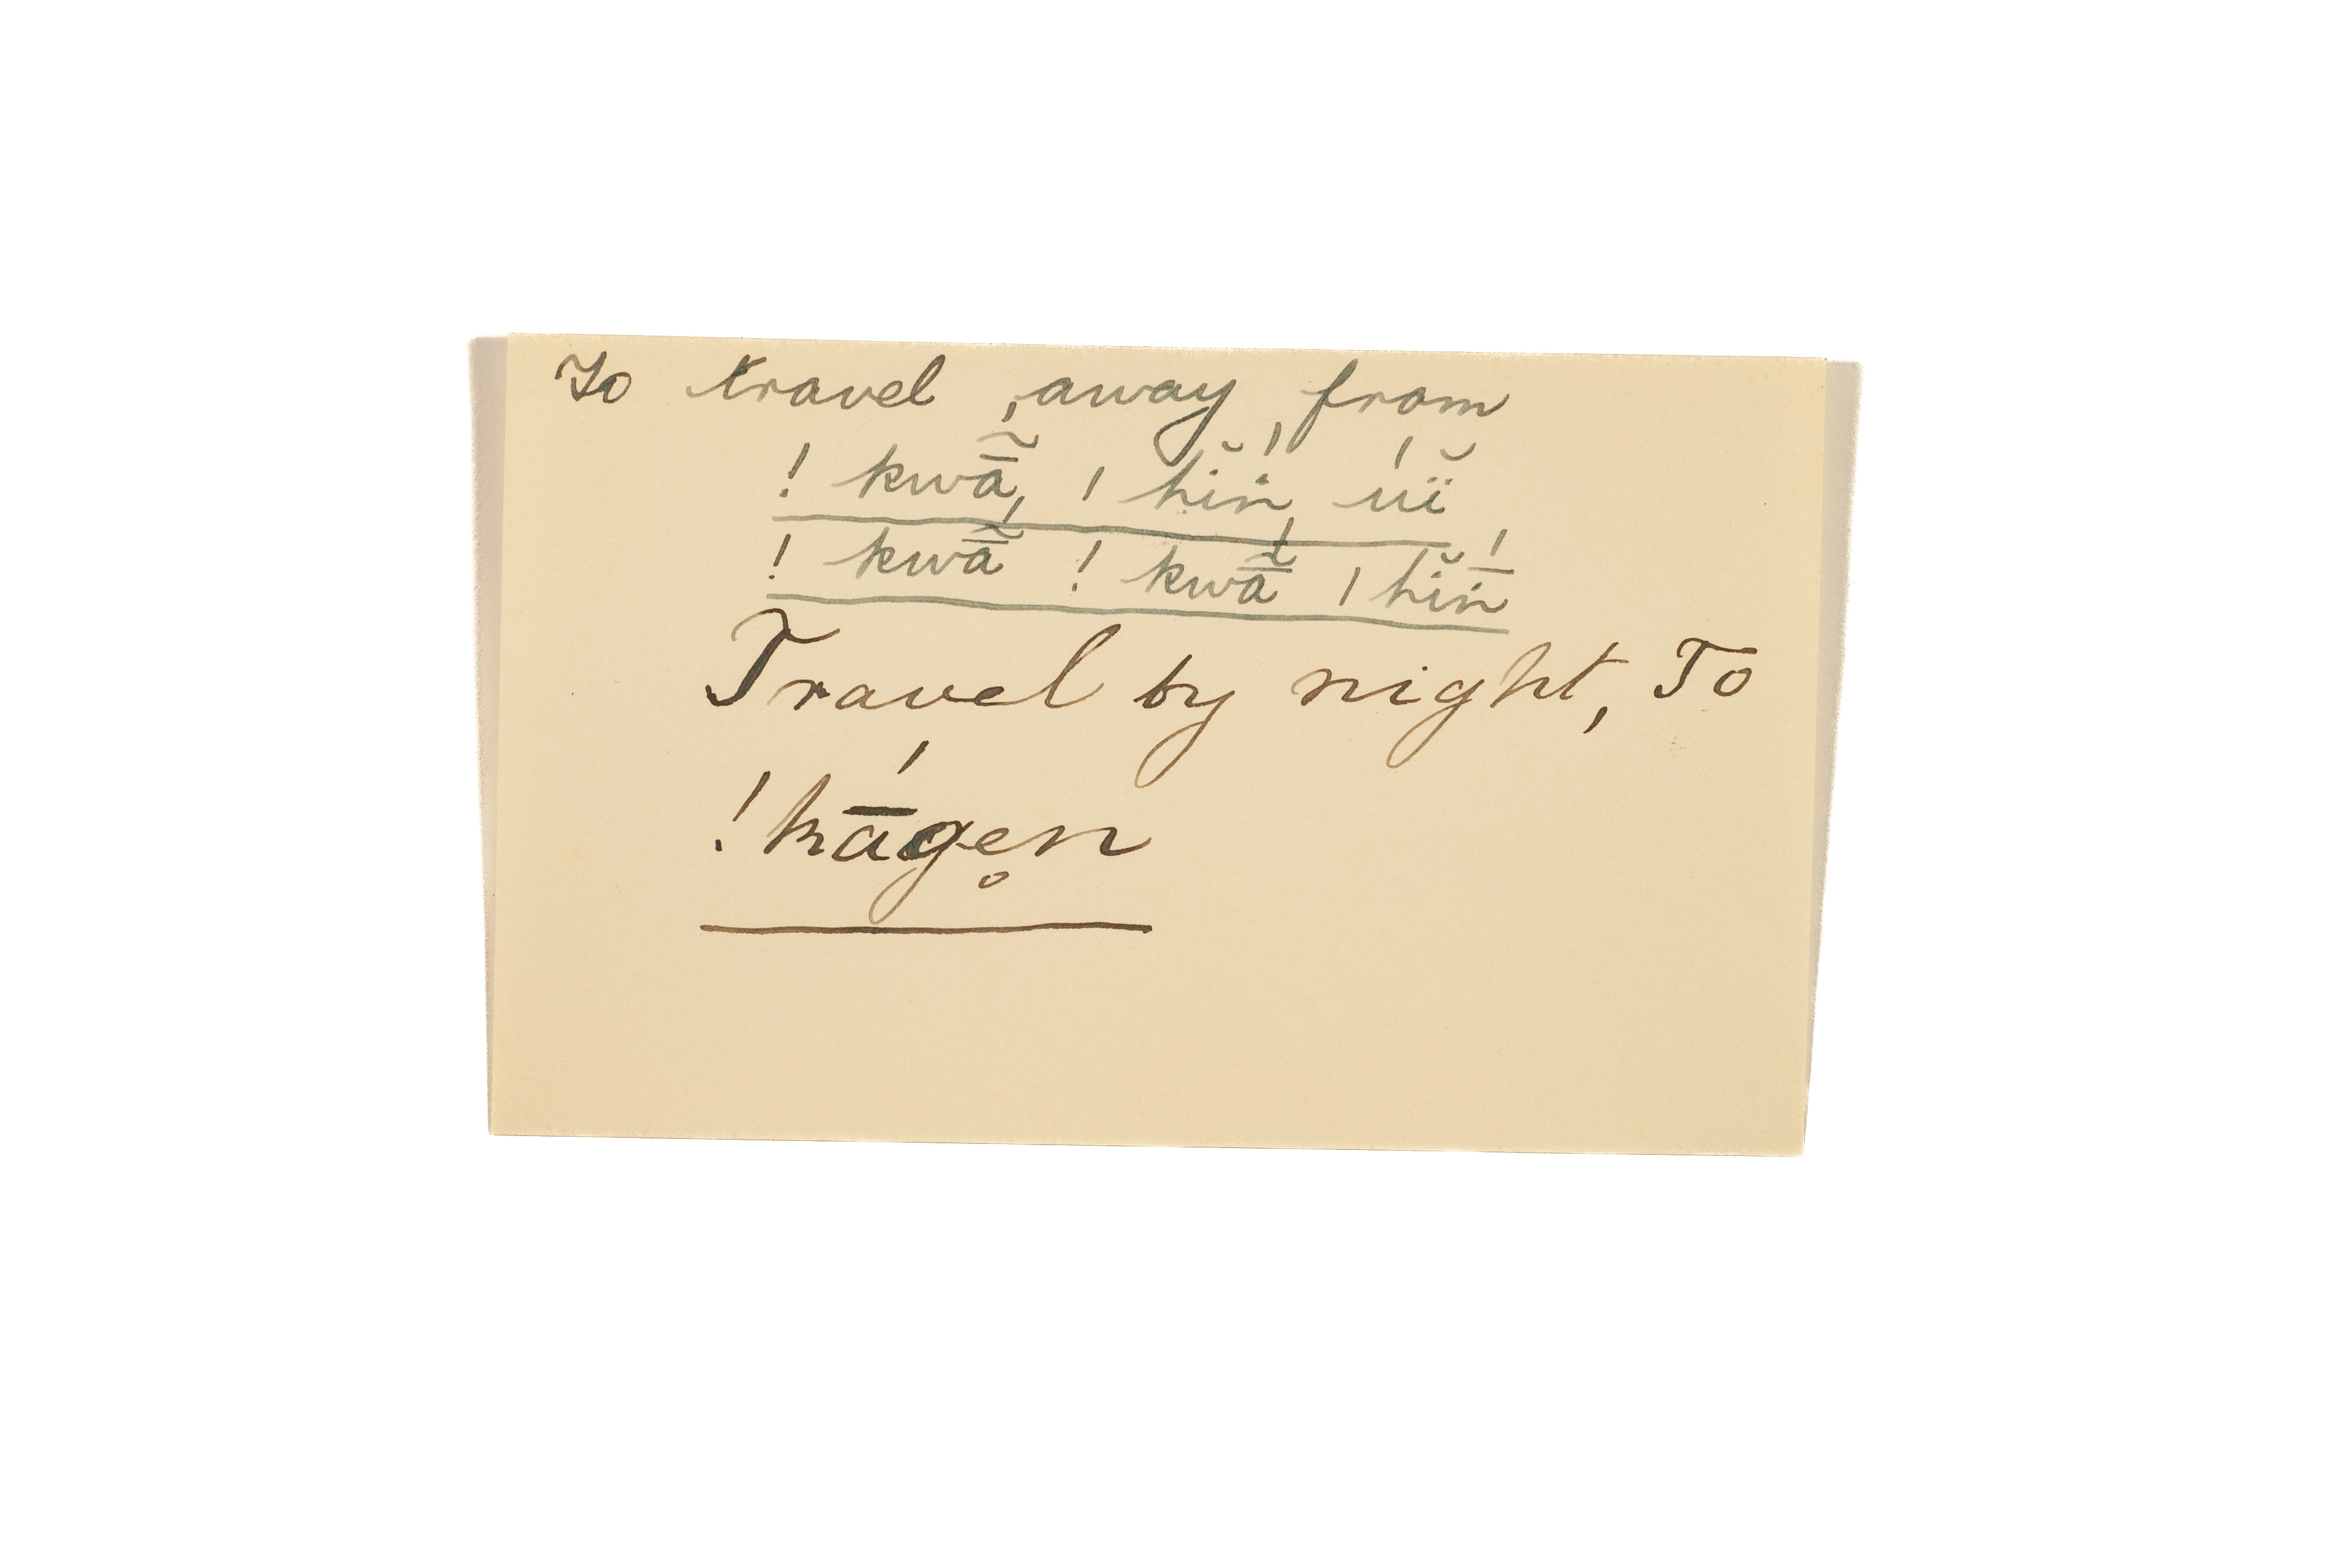 To travel away from
! kwā̃́, ǀ hĭṅ́ úï̆
! kwā̃́ ! kwā̃́ ǀ hĭṅ̄́
Travel by night, To
!hā́ge̥n